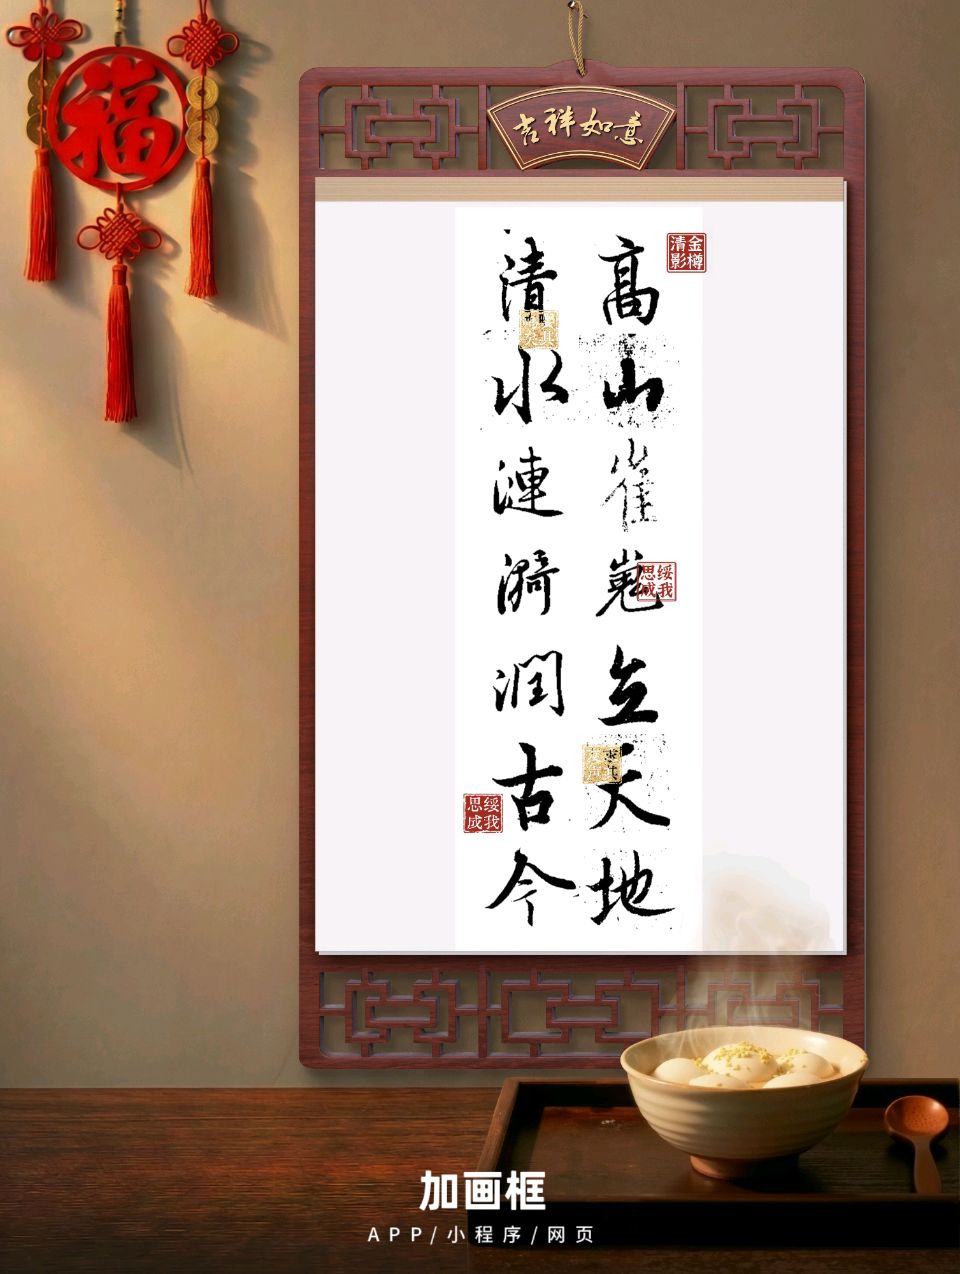 福
吉祥如意
高山崔嵬立天地
清水漣漪潤古今
金樽清影
绥我思成
绥我思成
加画框
APP/小程序/网页